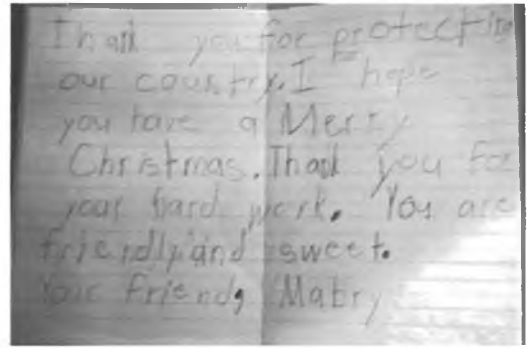 Thank you for protecting
our country. I hope
you have a Merry
Christmas. Thank you for
your hard work. You are
friendly and sweet.
Your friend, Mabry